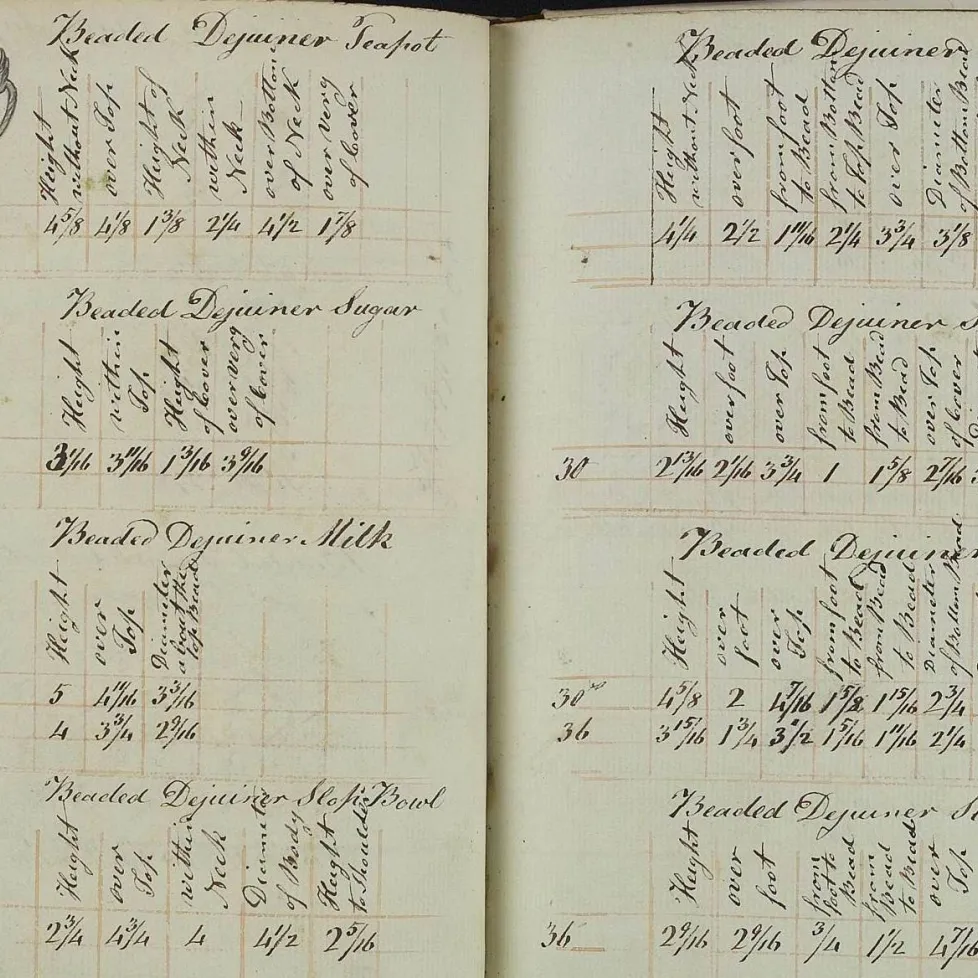 Beaded Dejuiner Teapot
Height without Neck
over Top
Height of Neck
within Neck
over Bottom of Neck
over verg of Cover
4 5/8 4 1/8 1 3/8 2 1/4 4 1/2 1 7/8
Beaded Dejuiner Sugar
Height
within Top
Height of Cover
over verg of Cover
3 1/16 3 11/16 1 3/16 3 9/16
Beaded Dejuiner Milk
Height
over Top
Diameter about the Top Bead
5 4 11/16 3 3/16
4 3 3/4 2 9/16
Beaded Dejuiner Slop Bowl
Height
over Top
within Neck
Diameter of Body
Height to Shoulder
2 3/4 4 3/4 4 4 1/2 2 5/16
Beaded Dejuiner
Height without Neck
over foot
from foot to Bead
from Bottom to Top Bead
over Top
Diameter of Bottom Bead
4 1/4 2 1/2 1 11/16 2 1/4 3 3/4 3 1/8
Beaded Dejuiner S
Height
over foot
over Top
from foot to Bead
from Bead to Bead
over Top of Cover
30 2 13/16 2 1/16 3 3/4 1 1 5/8 2 7/16
Beaded Dejuiner
Height
over foot
over Top
from foot to Bead
from Bead to Bead
Diameter of Bottom Bead
30 4 5/8 2 4 7/16 1 5/8 1 15/16 2 3/4
36 3 15/16 1 3/4 3 1/2 1 5/16 1 11/16 2 1/4
Beaded Dejuiner Sl
Height
over foot
from foot to Bead
from Bead to Bead
over Top
36 2 9/16 2 9/16 3/4 1 1/2 4 7/16